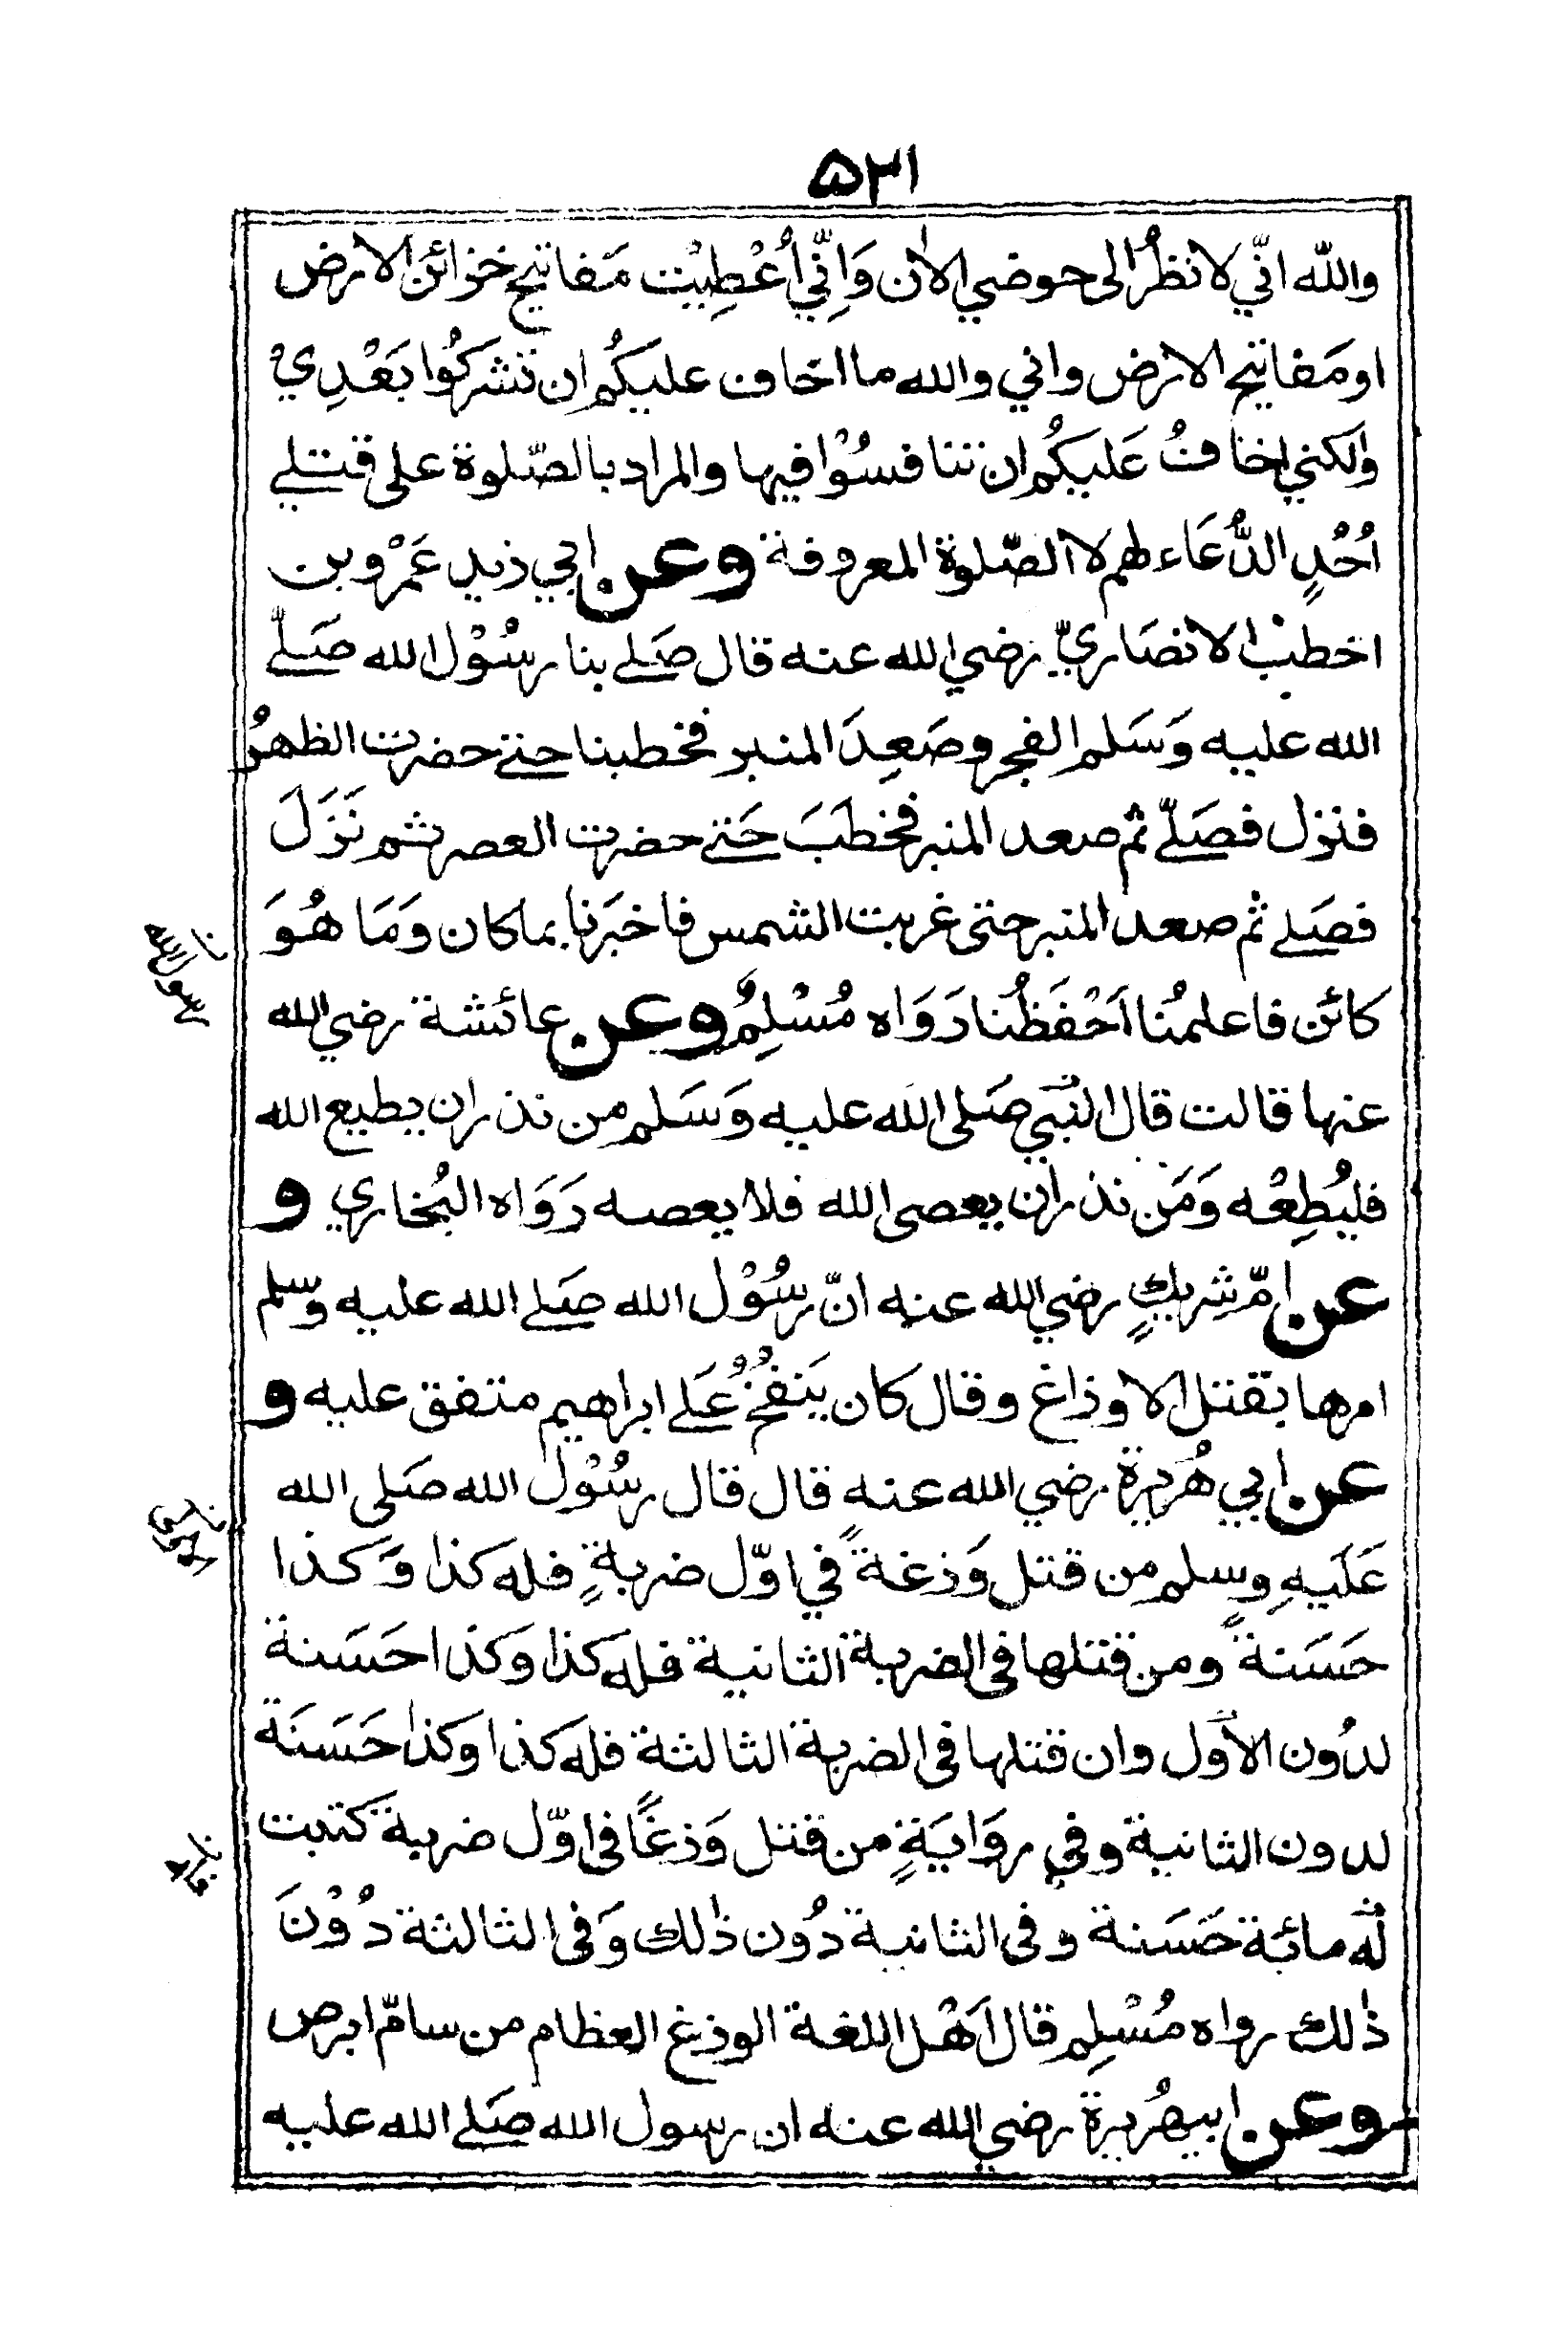 ۵۲۱
والله انّي لانظُرُ الى حوضي الاٰن وَاِنِّي اُعْطِيْت مَفاتيح خزائن الارض
او مَفاتيح الارض واني والله ما اخاف عليكُم ان تشركُوا بَعْدِيْ
ولٰكني اخافُ عَليكُم ان تنافسُوْا فيها والمراد بالصّلوة على قتلى
اُحُدٍ الدُّعَاء لهم لا الصّلوة المعروفة وعن ابي زيد عَمْرو بن
اخطب الانصَاريّ رضي الله عنه قال صَلى بنا رسُوْل الله صَلّى
الله عليه وَسَلم الفجر وصَعِدَ المنبر فخطبنا حتى حضرت الظهرُ
فنزل فصَلّى ثم صعد المنبر فخطَبَ حَتى حضرت العصر ثم نَزَلَ
فصَلى ثم صعد المنبر حتى غربت الشمس فاخبَرنا بما كان وَمَا هُوَ
كائن فاعلمُنا اَحْفَظُنا رَوَاه مُسْلِمٌ وعن عائشة رضي الله
عنها قالت قال النّبي صَلى الله عليه وَسَلم من نذر ان يطيع الله
فليُطِعْه وَمَن نذر ان يعصى الله فلا يعصه رَوَاه البُخاري و
عن امّ شريكٍ رضي الله عنه انّ رسُوْل الله صَلى الله عليه وسلم
امرها بقتل الاوزاغ وقال كان يَنفُخُ عَلى ابراهيم متفق عليه و
عن ابي هُريرة رضي الله عنه قال قال رسُوْل الله صَلى الله
عَلَيهِ وسلم من قتل وَزغةً في اوّل ضربةٍ فله كذا وَكذا
حَسَنةً ومن قتلها فى الضربة الثانية فله كذا وَكذا حَسَنة
لدُون الاوّل وان قتلها فى الضربة الثالثة فله كذا وكذا حَسَنَة
لدون الثانية وفي روَايَةٍ من قتل وَزغًا فى اوّل ضربة كتبت
لهُ مائة حَسَنة وفى الثانية دُون ذٰلك وَفى الثالثة دُوْنَ
ذٰلك رواه مُسْلِم قال اَهْل اللغة الوزغ العظام من سامّ ابرص
وعن ابيهُريرة رضي الله عنه ان رسول الله صَلى الله عليه